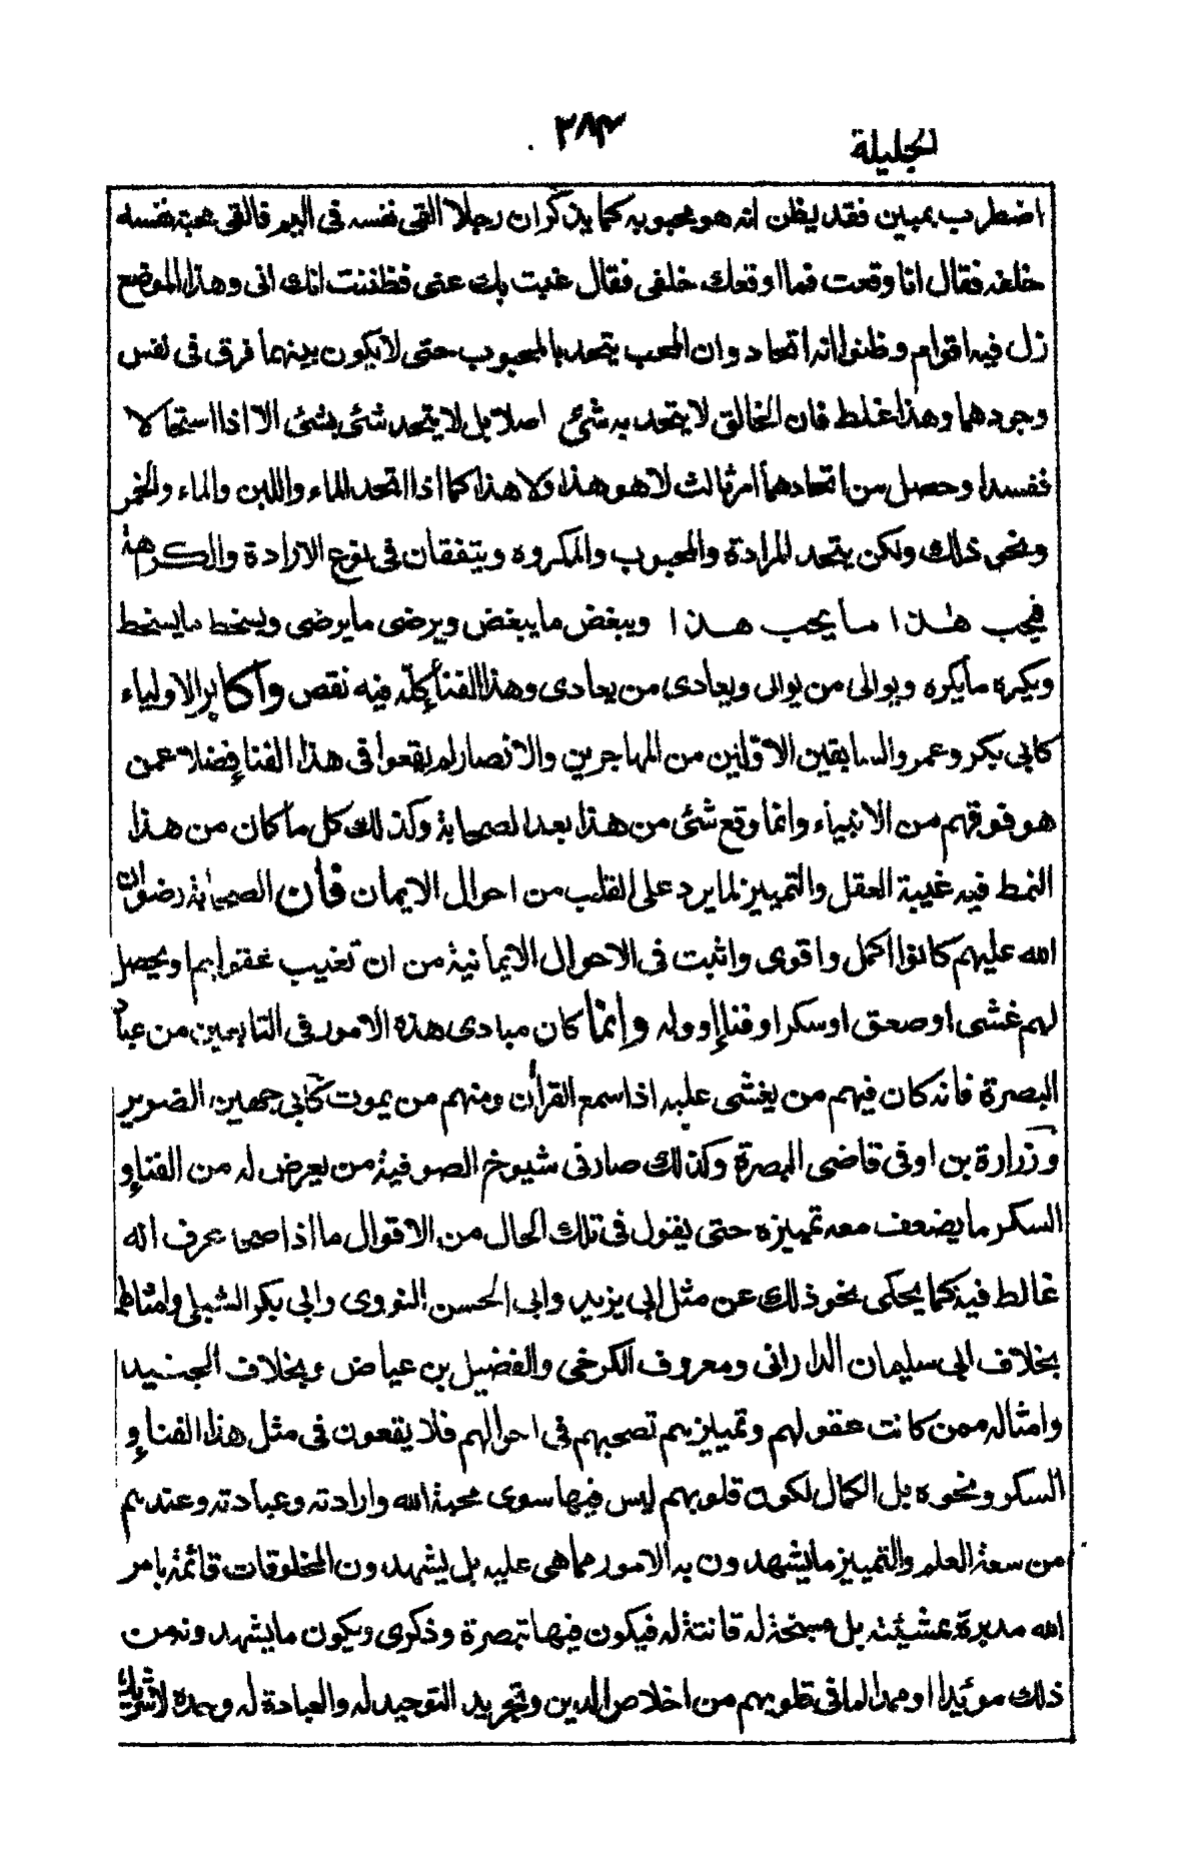 ٣٨٣
الجليلة
اضطرب بمبين فقد يظن انه هو محبوبه كما يذكر ان رجلا القى نفسه فى اليم فالقى محبه نفسه
خلفه فقال انا وقعت فما اوقعك خلفى فقال غبت بك عنى فظننت انك انى وهذا الموضع
زل فيه اقوام وظنوا انه اتحاد وان المحب يتحد بالمحبوب حتى لا يكون بينهما فرق فى نفس
وجودهما وهذا غلط فان الخالق لا يتحد به شئ اصلا بل لا يتحد شئ بشئ الا اذا استحالا
ففسدا وحصل من اتحادهما امر ثالث لا هو هذا ولا هذا كما اذا اتحد الماء واللبن والماء والخمر
ونحو ذلك ولكن يتحد المرادة والمحبوب والمكروه ويتفقان فى نوع الارادة والكراهة
فيحب هذا ما يحب هذا ويبغض ما يبغض ويرضى ما يرضى ويسخط ما يسخط
ويكره ما يكره ويوالى من يوالى ويعادى من يعادى وهذا الفناء كله فيه نقص واكابر الاولياء
كابى بكر وعمر والسابقين الاولين من المهاجرين والانصار لم يقعوا فى هذا الفناء فضلا عمن
هو فوقهم من الانبياء وانما وقع شئ من هذا بعد الصحابة وكذلك كل ما كان من هذا
النمط فيه غيبة العقل والتمييز لما يرد على القلب من احوال الايمان فان الصحابة رضوان
الله عليهم كانوا اكمل واقوى واثبت فى الاحوال الايمانية من ان تغيب عقولهم او يحصل
لهم غشى او صعق او سكر او فناء او وله وانما كان مبادى هذه الامور فى التابعين من عباد
البصرة فانه كان فيهم من يغشى عليه اذا سمع القرأن ومنهم من يموت كابى جهير الضرير
وزرارة بن اوفى قاضى البصرة وكذلك صار فى شيوخ الصوفية من يعرض له من الفناء و
السكر ما يضعف معه تمييزه حتى يقول فى تلك الحال من الاقوال ما اذا صحا عرف انه
غالط فيه كما يحكى نحو ذلك عن مثل ابى يزيد وابى الحسن النورى وابى بكر الشبلى وامثالهم
بخلاف ابى سليمان الدارانى ومعروف الكرخى والفضيل بن عياض وبخلاف الجنيد
وامثاله ممن كانت عقولهم وتمييزهم تصحبهم فى احوالهم فلا يقعون فى مثل هذا الفناء و
السكر ونحوه بل الكمال لكون قلوبهم ليس فيها سوى محبة الله وارادته وعبادته وعندهم
من سعة العلم والتمييز ما يشهدون به الامور مما هى عليه بل يشهدون المخلوقات قائمة بامر
الله مدبرة بمشيئته بل مسبحة له قانتة له فيكون فيها تبصرة وذكرى ويكون ما يشهدونه من
ذلك مؤيدا او ممدا لما فى قلوبهم من اخلاص الدين وتجريد التوحيد له والعبادة له وحده لا شريك له